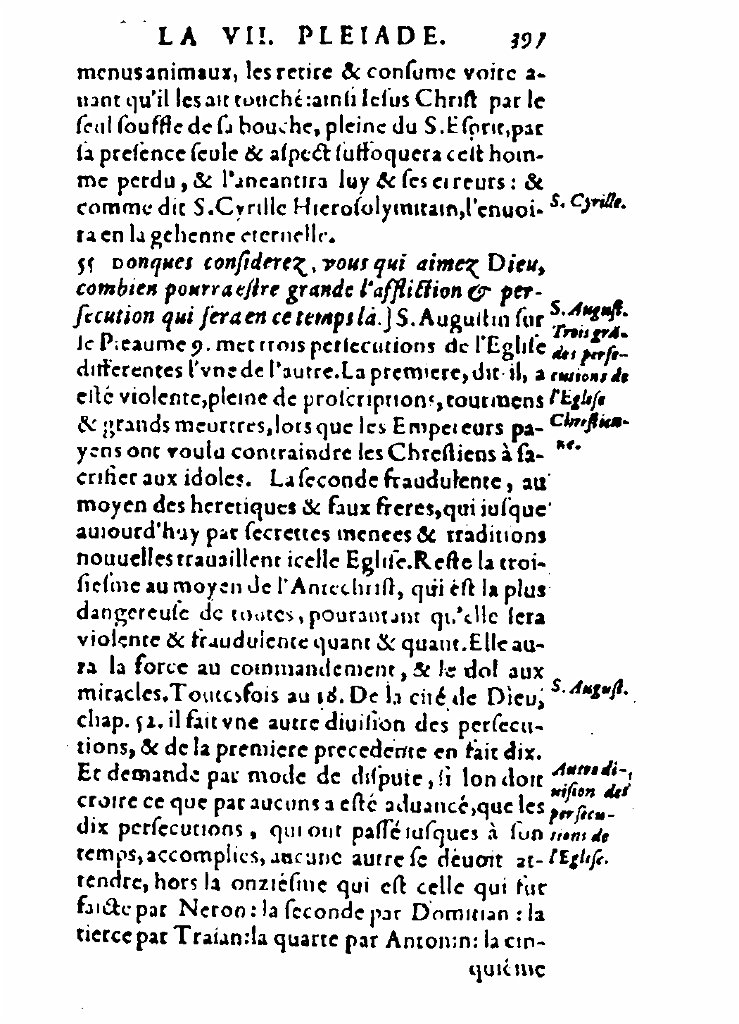 LA VII. PLEIADE. 397
menus animaux, les retire & conſume voire a-
uant qu'il les ait touché: ainſi Ieſus Chriſt par le
ſeul ſouffle de ſa bouche, pleine du S. Eſprit, par
ſa preſence ſeule & aſpect ſuffoquera ceſt hom-
me perdu, & l'aneantira luy & ſes erreurs: &
comme dit S. Cyrille Hieroſolymitain, l'enuoi-
S. Cyrille.
ra en la gehenne eternelle.
55 Donques conſiderez, vous qui aimez Dieu,
combien pourra eſtre grande l'affliction & per-
ſecution qui ſera en ce temps là.] S. Auguſtin ſur
S. Auguſt.
le Pſeaume 9. met trois perſecutions de l'Egliſe
Trois grã-
differentes l'vne de l'autre. La premiere, dit-il, a
des perſe-
eſté violente, pleine de proſcriptions, tourmens
cutions de
& grands meurtres, lors que les Empereurs pa-
l'Egliſe
yens ont voulu contraindre les Chreſtiens à ſa-
Chreſtien-
crifier aux idoles. La ſeconde fraudulente, au
ne.
moyen des heretiques & faux freres, qui iuſque
auiourd'huy par ſecrettes menees & traditions
nouuelles trauaillent icelle Egliſe. Reſte la troi-
ſieſme au moyen de l'Antechriſt, qui eſt la plus
dangereuſe de toutes, pourautant qu'elle ſera
violente & fraudulente quant & quant. Elle au-
ra la force au commandement, & le dol aux
miracles. Toutesfois au 18. De la cité de Dieu,
S. Auguſt.
chap. 52. il fait vne autre diuiſion des perſecu-
tions, & de la premiere precedente en fait dix.
Et demande par mode de diſpute, ſi lon doit
Autre di-
croire ce que par aucuns a eſté aduancé, que les
uiſion des
dix perſecutions, qui ont paſſé iuſques à ſon
perſecu-
temps, accomplies, aucune autre ſe deuoit at-
tions de
tendre, hors la onziéſme qui eſt celle qui fut
l'Egliſe.
faicte par Neron: la ſeconde par Domitian: la
tierce par Traian: la quarte par Antonin: la cin-
quiéme